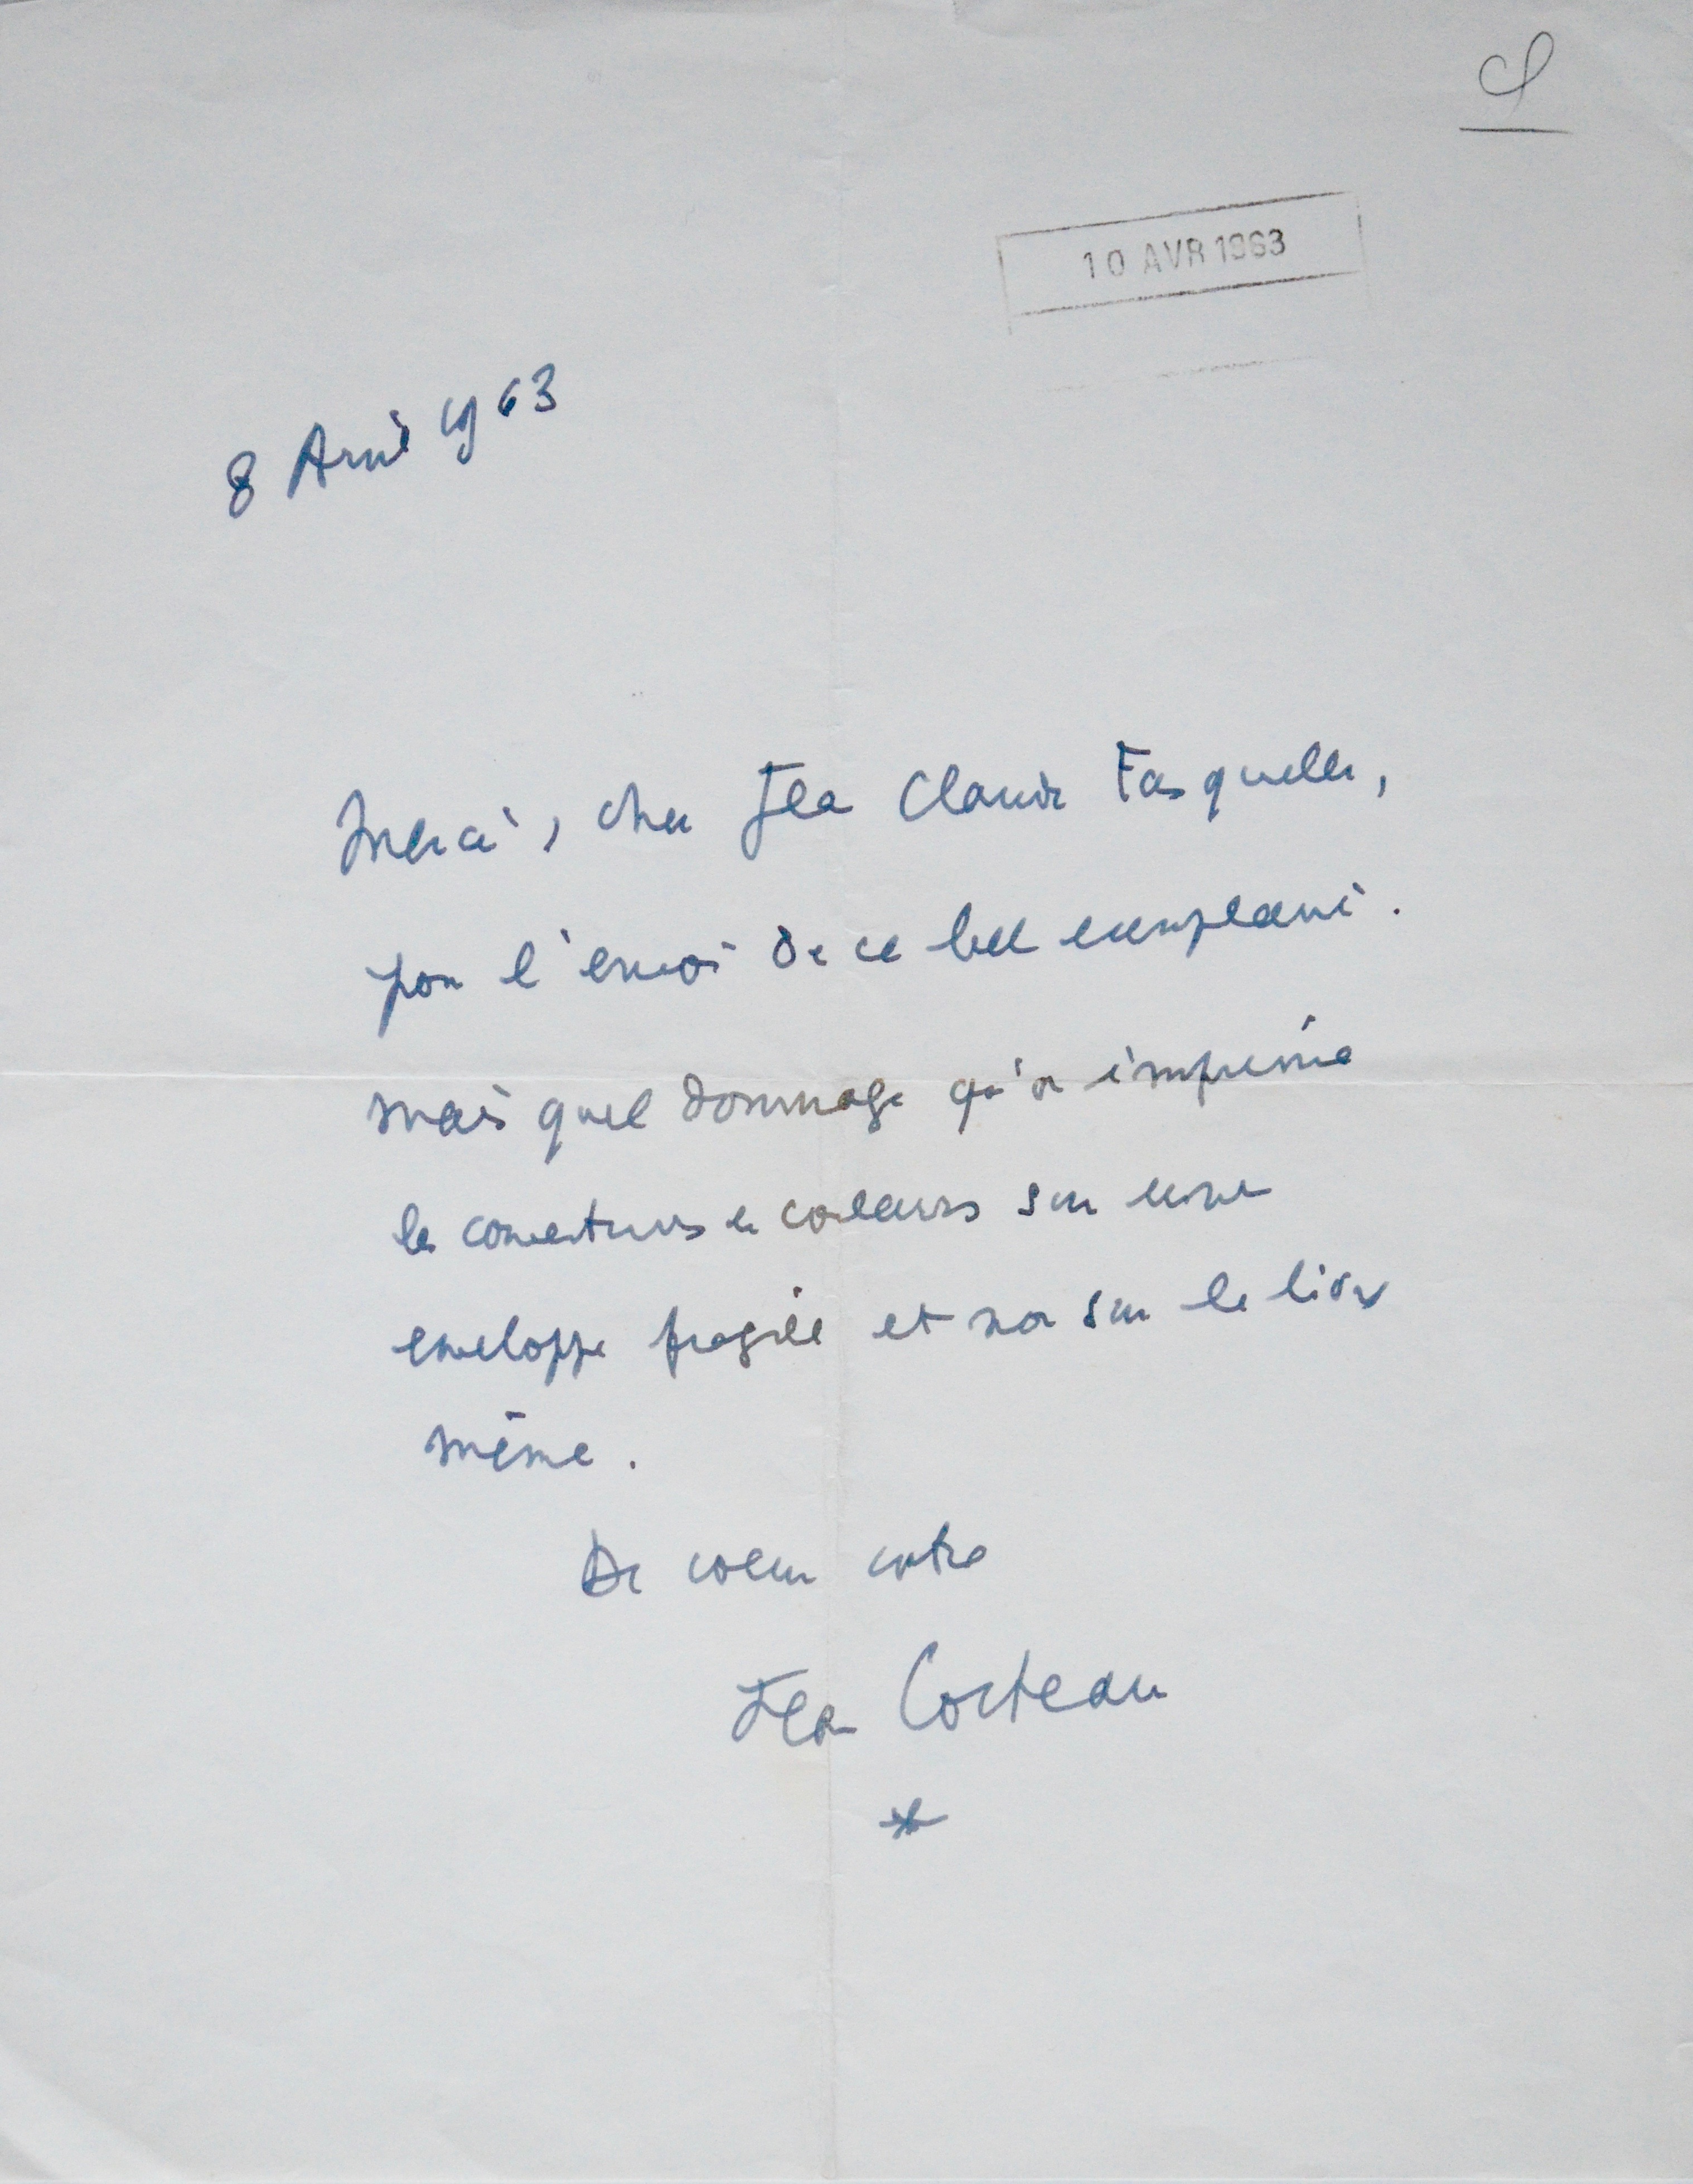 10 AVR 1963
8 Avril 1963
Merci, cher Jean Claude Fasquelle,
pour l'envoi de ce bel exemplaire.
Mais quel dommage qu'on imprime
les couvertures en couleurs sur une
enveloppe fragile et non sur le livre
même.
De coeur votre
Jean Cocteau
*